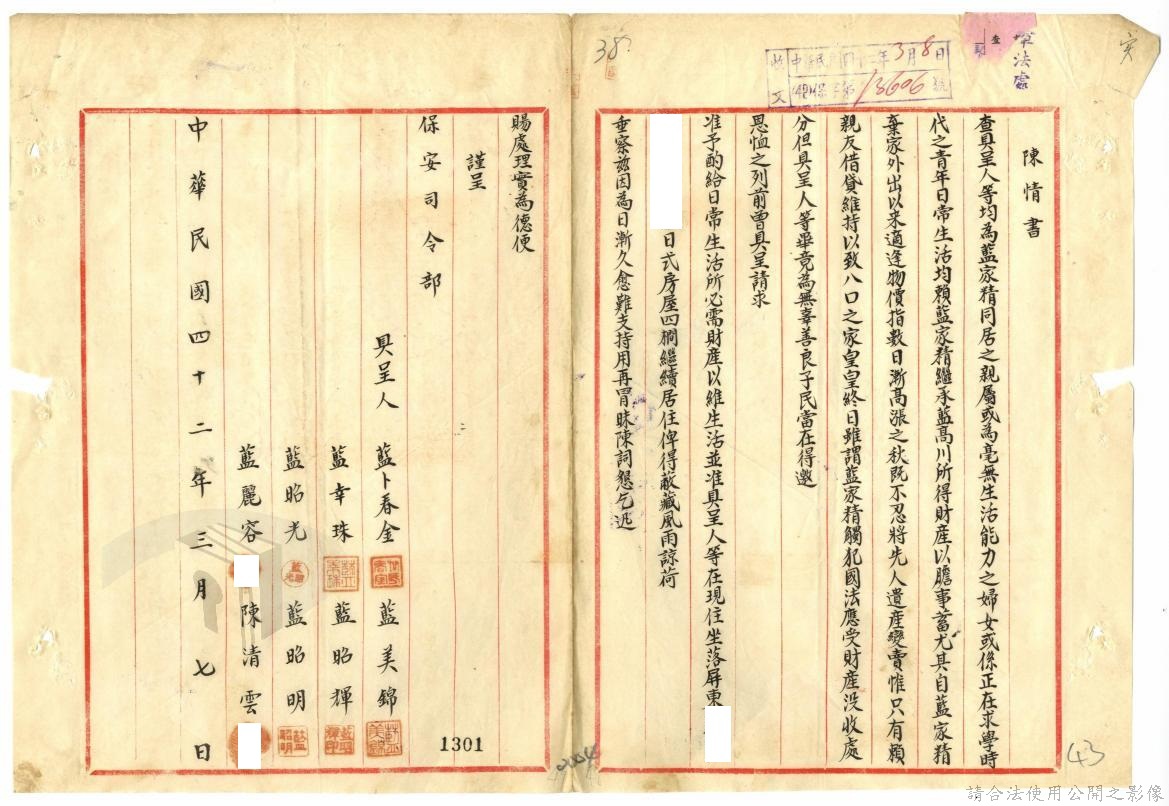 軍法處
查
38
收文
中華民國四十二年3月8日
13606號
陳情書
查具呈人等均為藍家精同居之親屬或為毫無生活能力之婦女或係正在求學時
代之青年日常生活均賴藍家精繼承藍高川所得財產以贍事蓄尤其自藍家精
棄家外出以來適逢物價指數日漸高漲之秋既不忍將先人遺產變賣惟只有賴
親友借貸維持以致八口之家皇皇終日雖謂藍家精觸犯國法應受財產没收處
分但具呈人等畢竟為無辜善良子民當在得邀
恩恤之列前曾具呈請求
准予酌給日常生活所必需財產以維生活並准具呈人等在現住坐落屏東
日式房屋四棟繼續居住俾得蔽藏風雨諒荷
垂察茲因為日漸久愈難支持用再冒昧陳詞懇乞迅
賜處理實為德便
謹呈
保安司令部
具呈人 藍卜春金 藍美錦
藍幸珠 藍昭輝
藍昭光 藍昭明
藍麗容 陳清雲
中華民國四十二年三月七日
1301
0004
43
請合法使用公開之影像